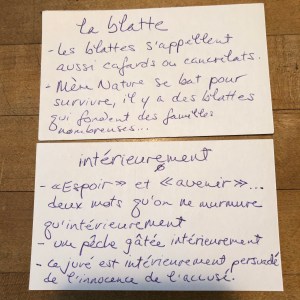 la blatte
- Les blattes s'appellent
aussi cafards ou cancrelats.
- Mère Nature se bat pour
survivre, il y a des blattes
qui fondent des familles
nombreuses...
intérieurement
- «Espoir» et «avenir»...
deux mots qu'on ne murmure
qu'intérieurement
- une pêche gâtée intérieurement
- Le juré est intérieurement persuadé
de l'innocence de l'accusé.